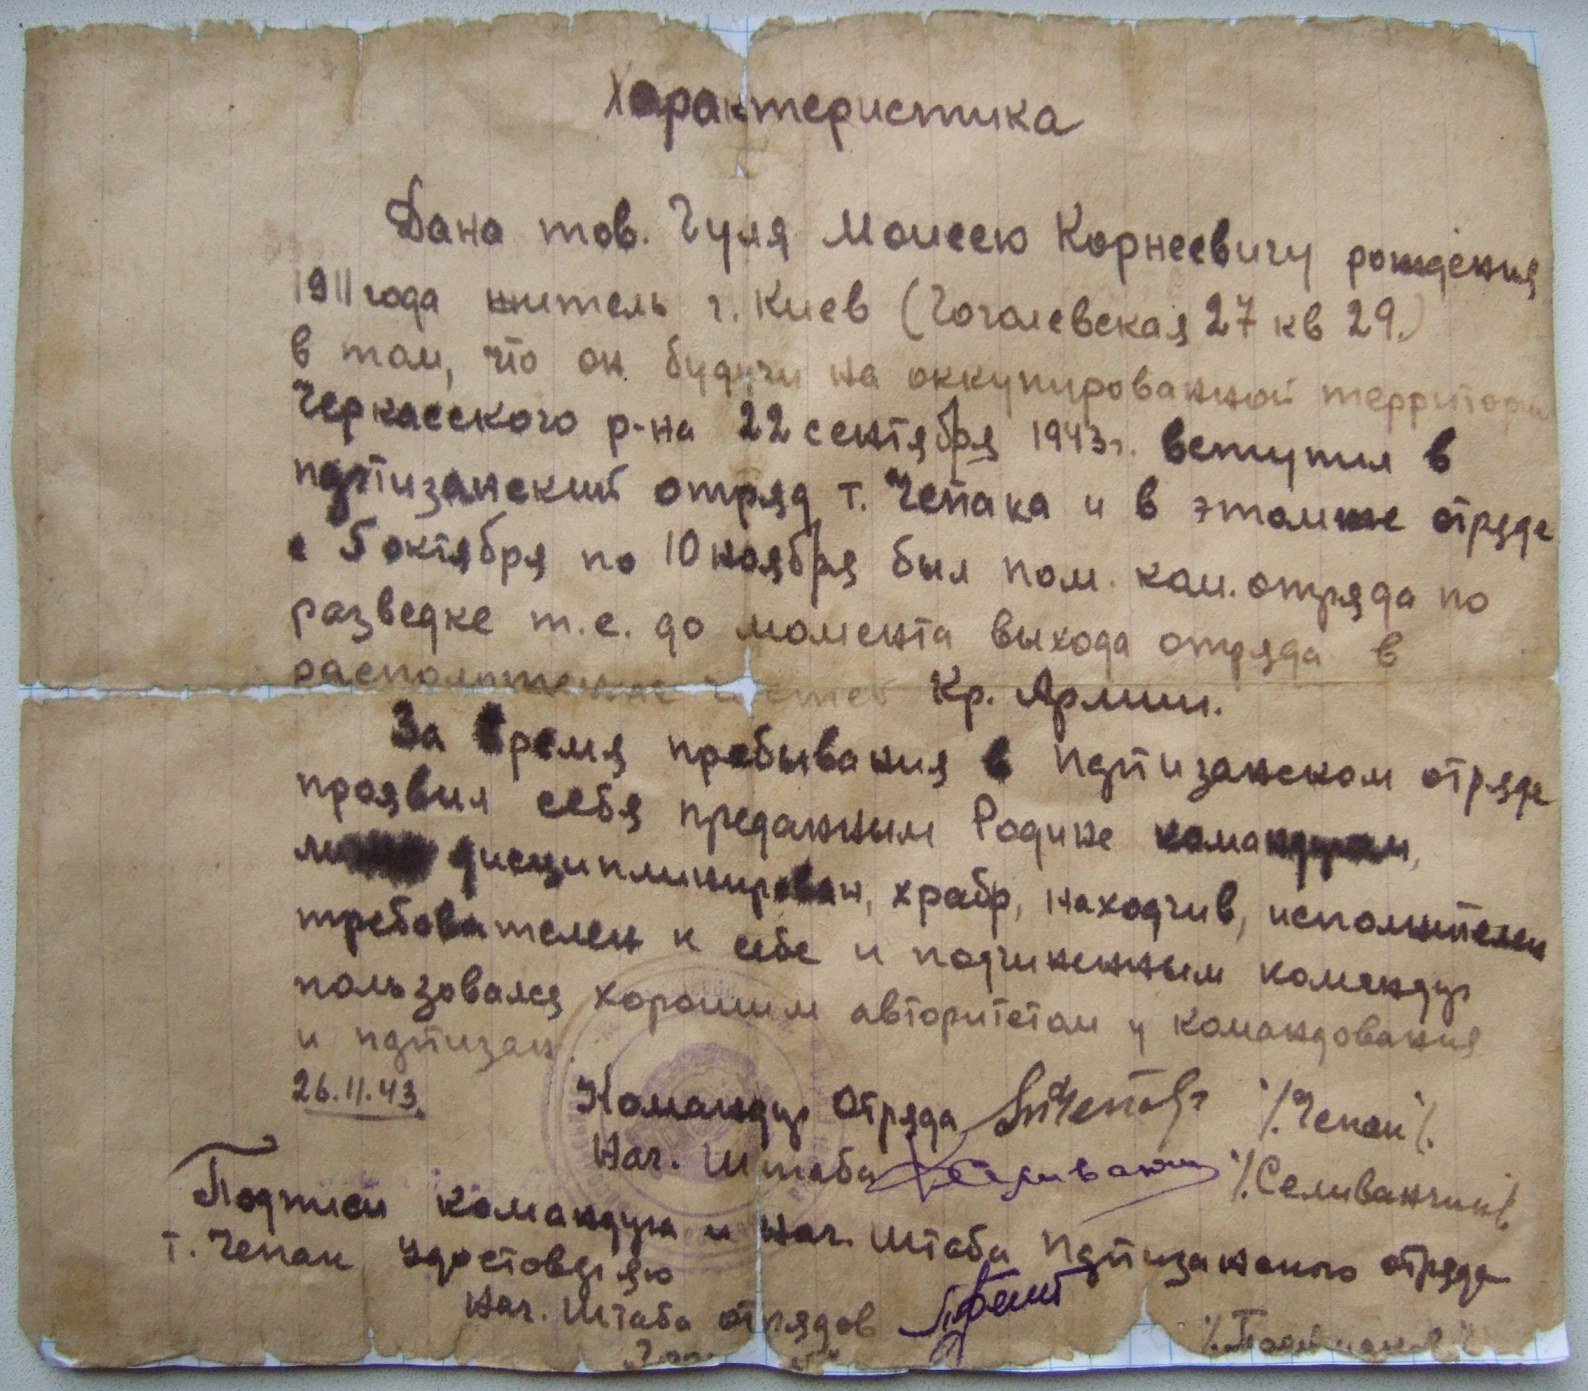 Характеристика
Дана тов. Гуля Моисею Корнеевичу рождения
1911 года житель г. Киев (Гоголевская 27 кв 29.)
в том, что он будучи на оккупированной территории
Черкасского р-на 22 сентября 1943 г. вступил в
партизанский отряд т. Чепака и в этомже отряде
с 5 октября по 10 ноября был пом. ком. отряда по
разведке т.е. до момента выхода отряда в
расположение частей Кр. Армии.
За время пребывания в партизанском отряде
проявил себя преданным Родине командиром,
дисциплинирован, храбр, находчив, исполнителен
требователен к себе и подчиненным командир
пользовался хорошим авторитетом у командования
и партизан.
26.11.43
Командир отряда /.Чепак/.
Нач. Штаба Селиванчик /.Селиванчик/.
Подписи командира и нач. штаба партизанского отряда
т. Чепак удостоверяю
Нач. Штаба отрядов